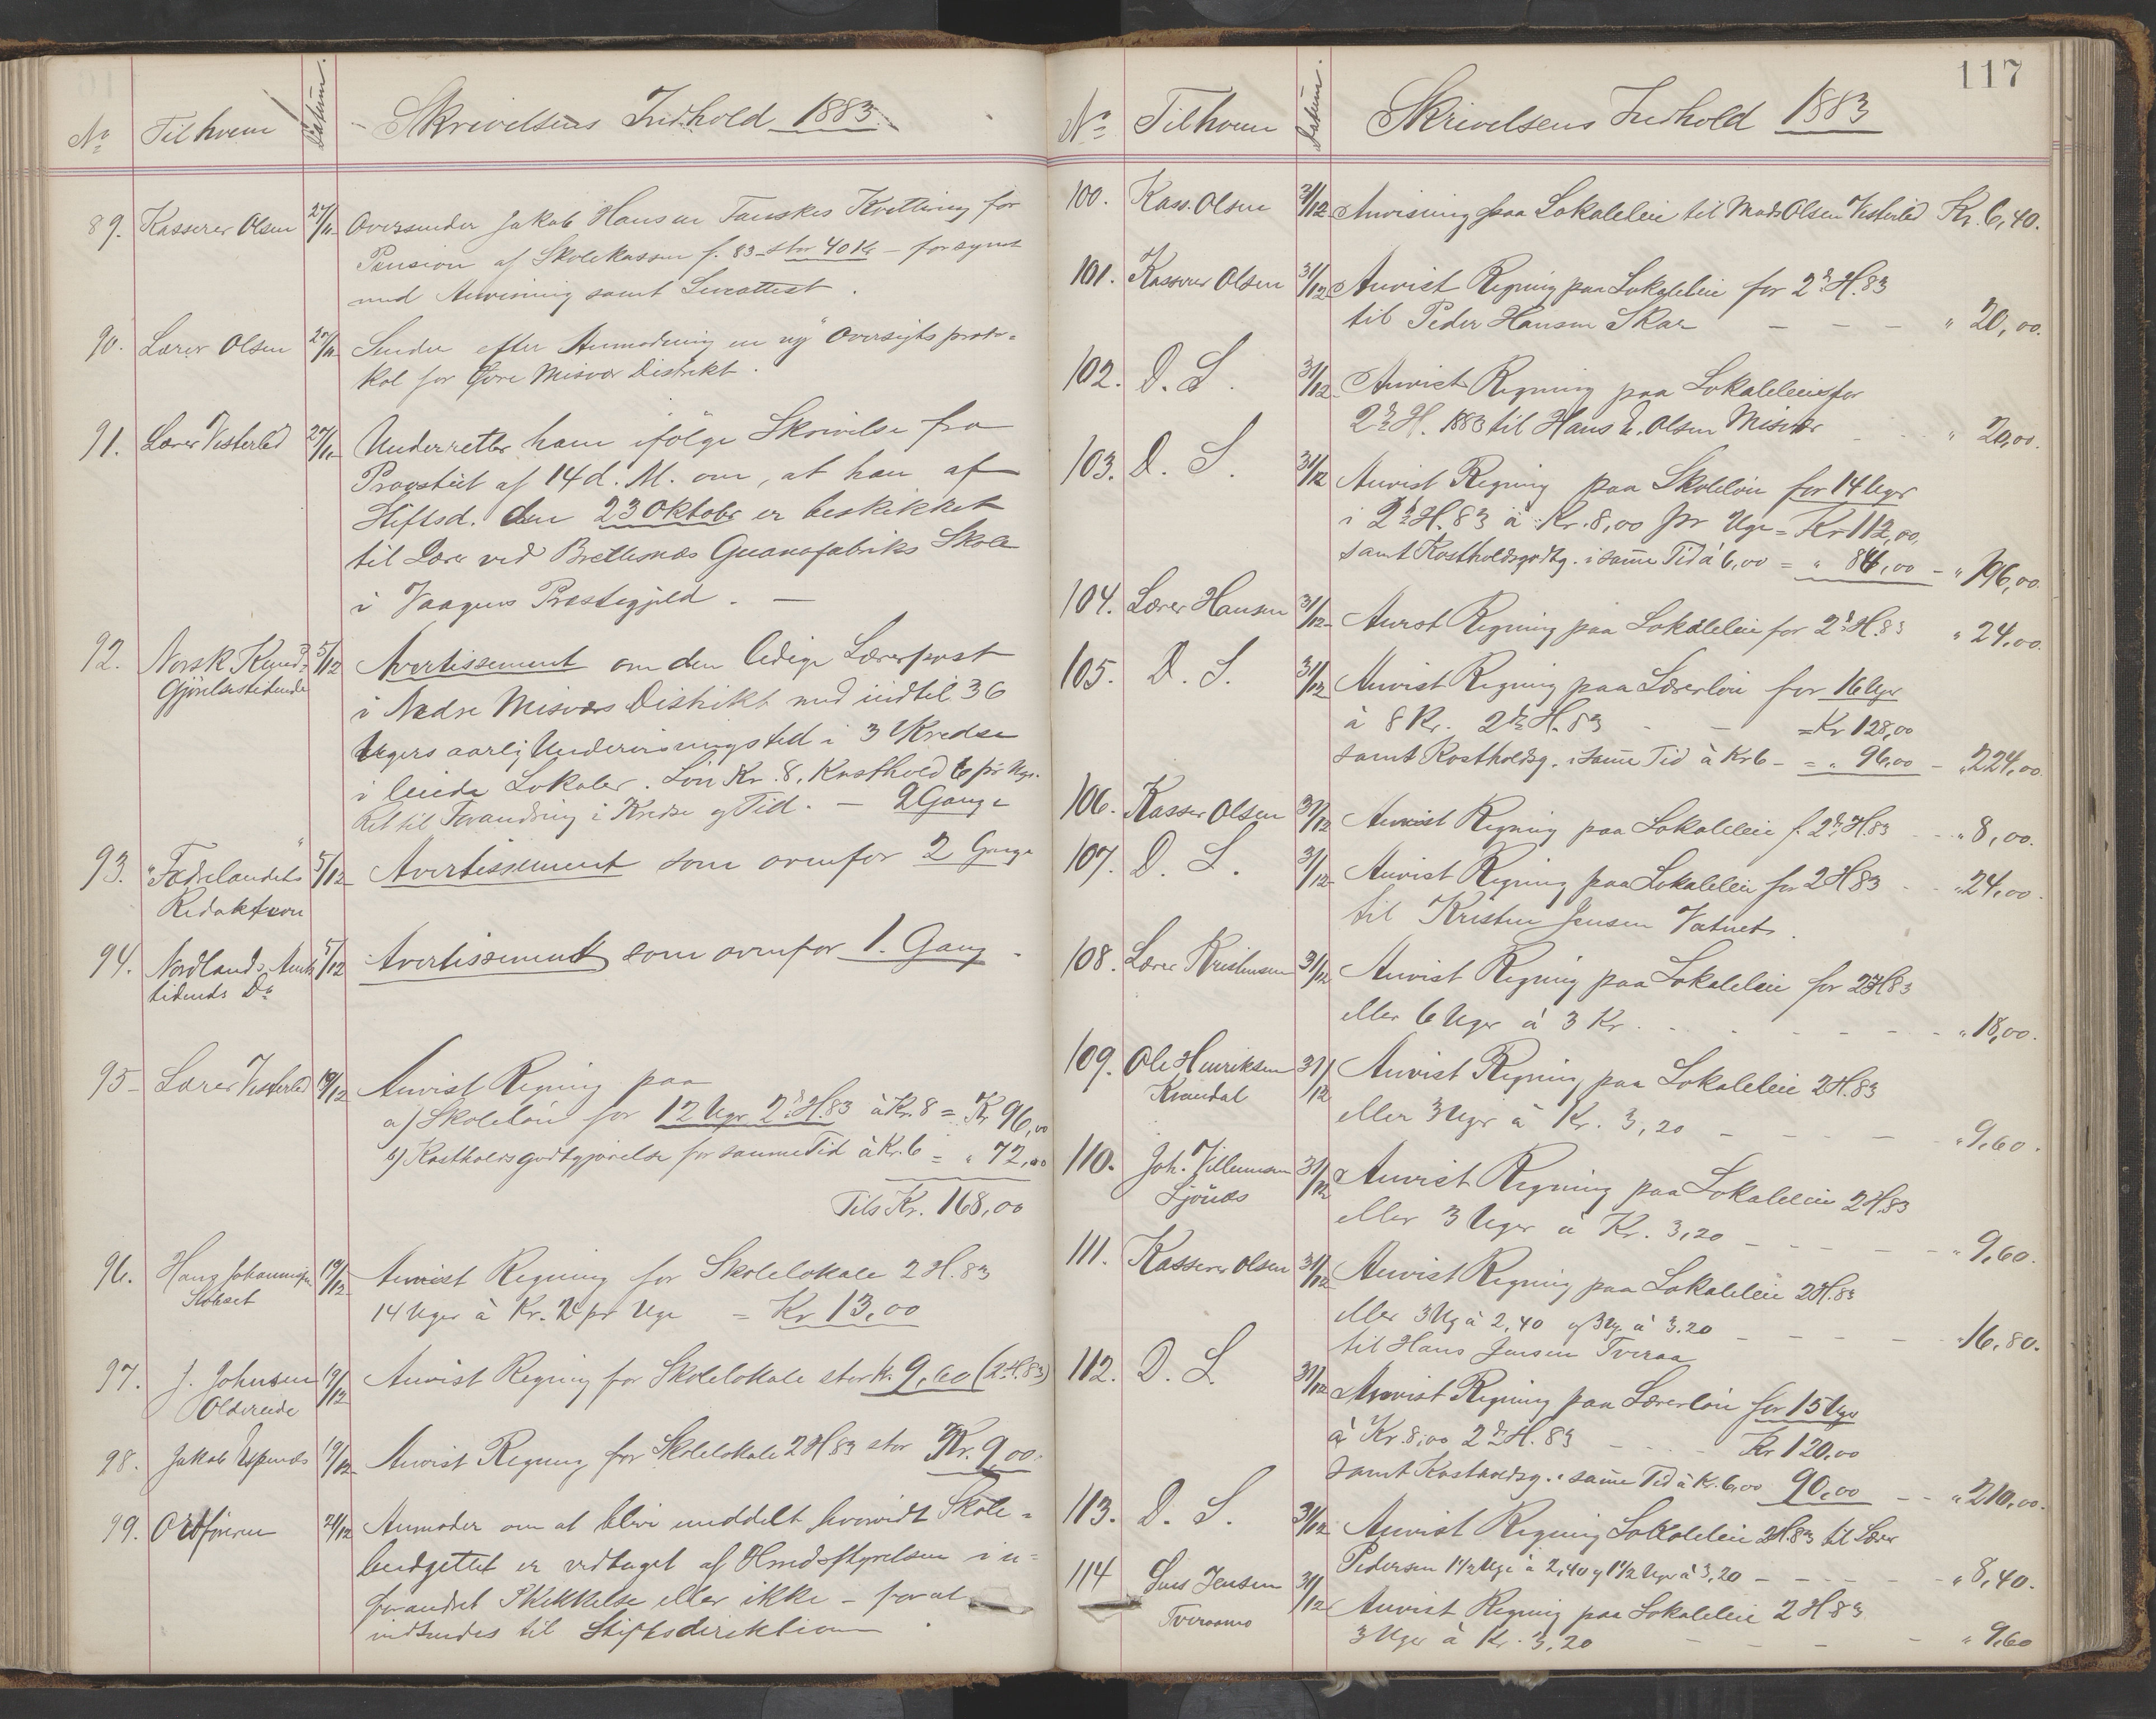 No Til hvem Datum. Skrivelsens Indhold 1883.
89. Kasserer Olsen 27/11 Oversender Jakob Hansen Tanskes Kvittering for
Pension af Skolekassen f. 83 stor 40 Kr – forsynt
med Anvisning samt Leveattest.
90. Lærer Olsen 27/11 Sender efter Anmodning en ny Oversigtsproto-
kol for Øvre Misvær Distrikt.
91. Lærer Vesterlid 27/11 Underretter ham ifölge Skrivelse fra
Provstiet af 14 d. M. om, at han af
Stiftsd. den 23 Oktober er beskikket
til Lærer ved Brettesnæs Guanofabriks Skole
i Vaagens Præstegjeld. —
92. Norsk Kund- 5/12 Avertissement om den ledige Lærerpost
Gjörelsestidende
i Nedre Misværs Distrikt med indtil 36
Ugers aarlig Undervisningstid i 3 Kredse
i leiede Lokaler. Lön Kr. 8, Kosthold 6 pr Uge.
Ret til Forandring i Kredse og Tid. — 2 Gange
93. "Fædrelandets" 5/12 Avertissement som ovenfor 2 Gange
Redaktion
94. Nordlands Amts 5/12 Avertissement som ovenfor 1. Gang.
tidende Do
95 Lærer Vesterlid 19/12 Anvist Regning paa
a) Skolelön for 12 Uger 2d H. 83 à Kr. 8 = Kr 96,00
b) Kostholdsgodtgjörelse for samme Tid à Kr. 6 = " 72,00
Tils Kr. 168,00
96. Hans Johannesen 19/12 Anvist Regning for Skolelokale 2 H. 83
14 Uger à Kr. pr Uge = Kr 13,00
97. J. Johnsen 19/12 Anvist Regning for Skolelokale stor k. 9,60 (2 H. 83)
Oldereide
98. Jakob Espenæs 19/12 Anvist Regning for Skolelokale 2 H 83 stor Kr. 9,00.
99. Ordföreren 21/12 Anmoder om at blive meddelt hvorvidt Skole-
budgettet er vedtaget af Hredsstyrelsen i u-
forandret Skikkelse eller ikke – for at
indsendes til Stiftsdirektionen.
117
No Til hvem Datum. Skrivelsens Indhold 1883
100. Kass. Olsen 31/12 Anvisning paa Lokaleleie til Mads Olsen Vesterlid Kr. 6,40.
101. Kasserer Olsen 31/12 Anvist Regning paa Lokaleleie for 2d H. 83
til Peder Hansen Skar – – – " 20,00.
102. D. S. 31/12 Anvist Regning paa Lokaleleie for
2d H. 1883 til Hans E. Olsen Misvær " 20,00.
103. D. S. 31/12 Anvist Regning paa Skolelön for 14 Uger
i 2d H. 83 à Kr. 8,00 pr Uge = Kr 112,00,
samt Kostholdsgodtg. i samme Tid à 6,00 = " 84,00 – " 196,00.
104. Lærer Hansen 31/12 Anvist Regning paa Lokaleleie for 2d H. 83 " 24,00.
105. D. S. 31/12 Anvist Regning paa Lærerlön for 16 Uger
à 8 Kr. 2d H. 83 – = Kr 128,00
samt Kostholdsg. i samme Tid à Kr 6 – = " 96,00 – " 224,00.
106. Kasser Olsen 31/12 Anvist Regning paa Lokaleleie f. 2d H. 83 – " 8,00.
107. D. S. 31/12 Anvist Regning paa Lokaleleie for 2 H 83 – " 24,00.
til Kristen Jensen Vatnet.
108. Lærer Kristensen 31/12 Anvist Regning paa Lokaleleie for 2 H 83
eller 6 Uger à 3 Kr. – – – " 18,00.
109. Ole Henriksen 31/12 Anvist Regning paa Lokaleleie 2 H. 83
Kvandal
eller 3 Uger à Kr. 3,20 – – – " 9,60.
110. Joh. Villumsen 31/12 Anvist Regning paa Lokaleleie 2 H. 83
Ljönæs
eller 3 Uger à Kr. 3,20 – – – " 9,60.
111. Kasserer Olsen 31/12 Anvist Regning paa Lokaleleie 2 H. 83
eller 3 Ug à 2,40 og 3 Ug. à 3.20 – – – " 16,80.
til Hans Jensen Tveraa
112. D. S. 31/12 Anvist Regning paa Lærerlön for 15 Uger
à Kr. 8,00 2d H. 83 – – Kr 120,00
samt Kostholdsg. i samme Tid à Kr. 6,00 90,00 – – " 210,00.
113. D. S. 31/12 Anvist Regning Lokaleleie 2 H. 83 til Lærer
Pedersen 1 1/2 Uge à 2,40 og 1 1/2 Uge à 3,20 – – – " 8,40.
114 Jensen 31/12 Anvist Regning paa Lokaleleie 2 H 83
Tveraamo
3 Uger à Kr. 3,20 – – – " 9,60